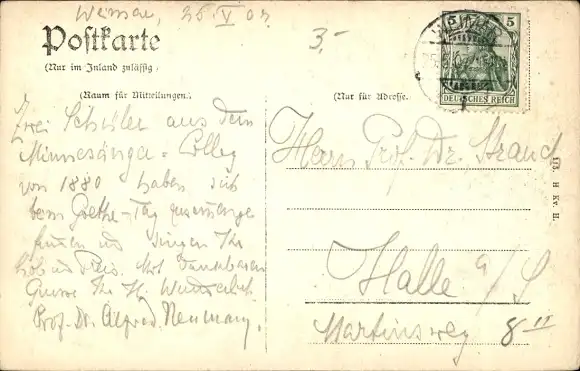 Weimar, 25 V 07.
3,-
Postkarte
(Nur im Inland zulässig)
(Raum für Mitteilungen.)
(Nur für Adresse.)
5 5
WEIMAR
DEUTSCHES REICH
Zwei Schüler aus dem
Minnesänger-Colleg
von 1880 haben sich
beim Goethe-Tag zusammenge
funden und singen Ihr
Lob und Preis. Mit dankbaren
Gruss Ihr
Prof. Dr. Alfred Neumann.
Herrn Prof. Dr. Strauch
Halle a/S
Martinsweg 8 II
113 H Kr. H.